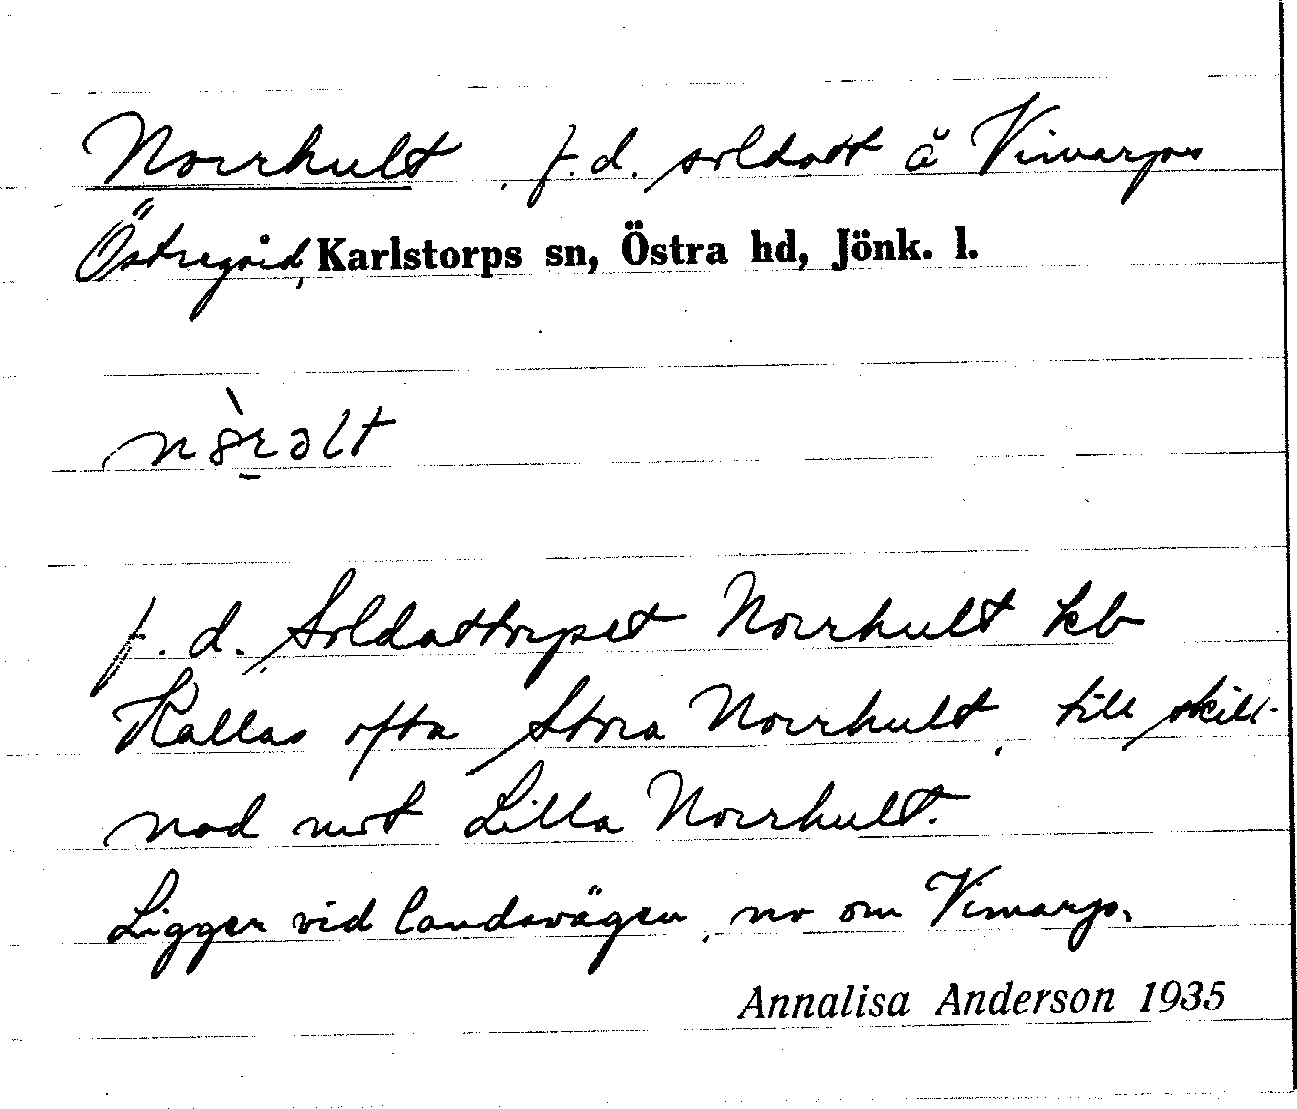 Norrhult, f.d. soldatt å Vimarps
Östregård, Karlstorps sn, Östra hd, Jönk. l.
f.d. Soldattorpet Norrhult kb
Kallas ofta Stora Norrhult, till skill-
nad mot Lilla Norrhult.
Ligger vid landsvägen, nv om Vimarp.
Annalisa Anderson 1935